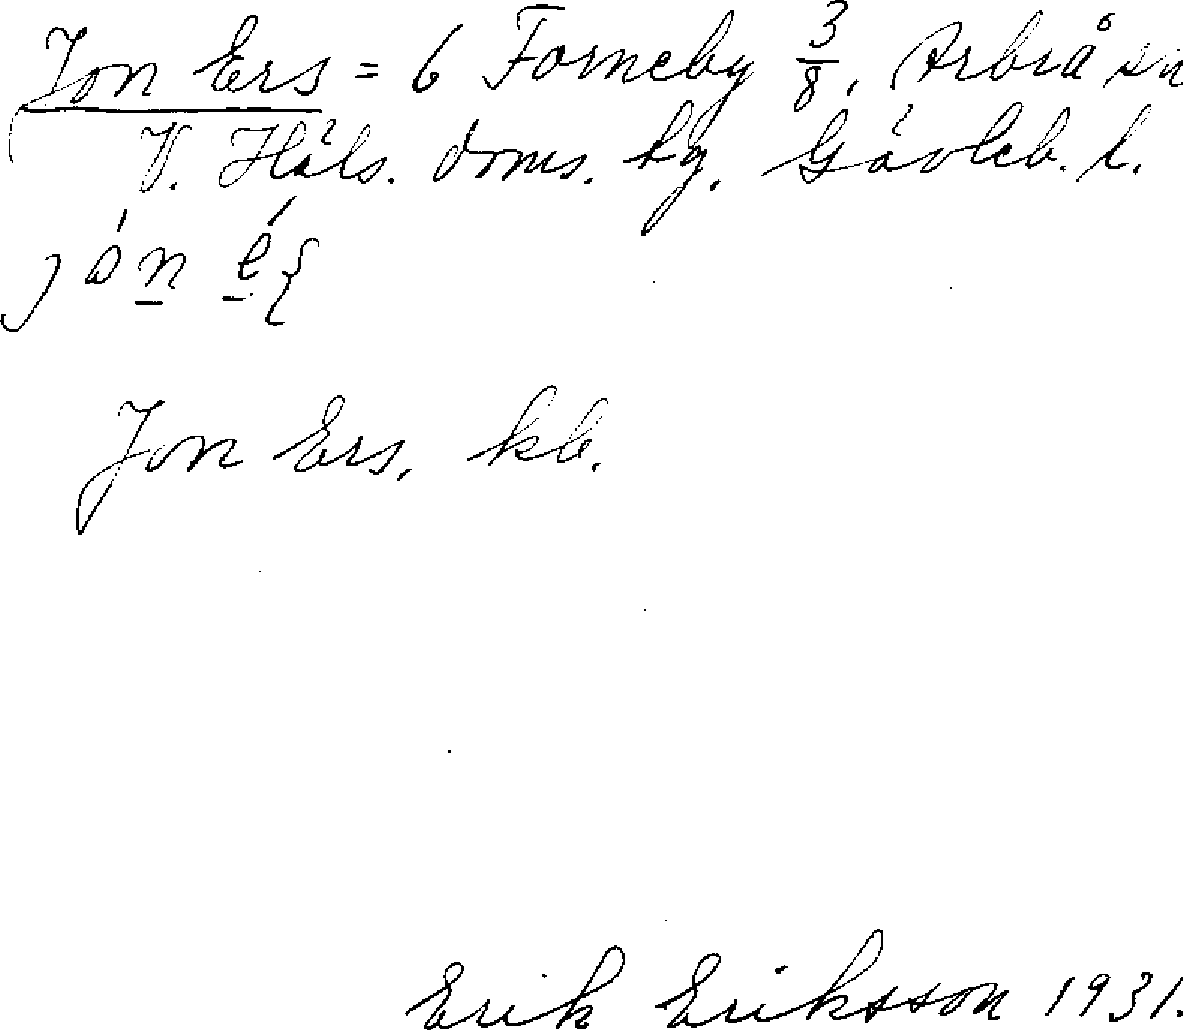 Jon Ers = 6 Forneby 3/8, Arbrå sn
V. Häls. doms. hg. Gävleb. l.
Jon Ers, kb.
Erik Eriksson 1931.